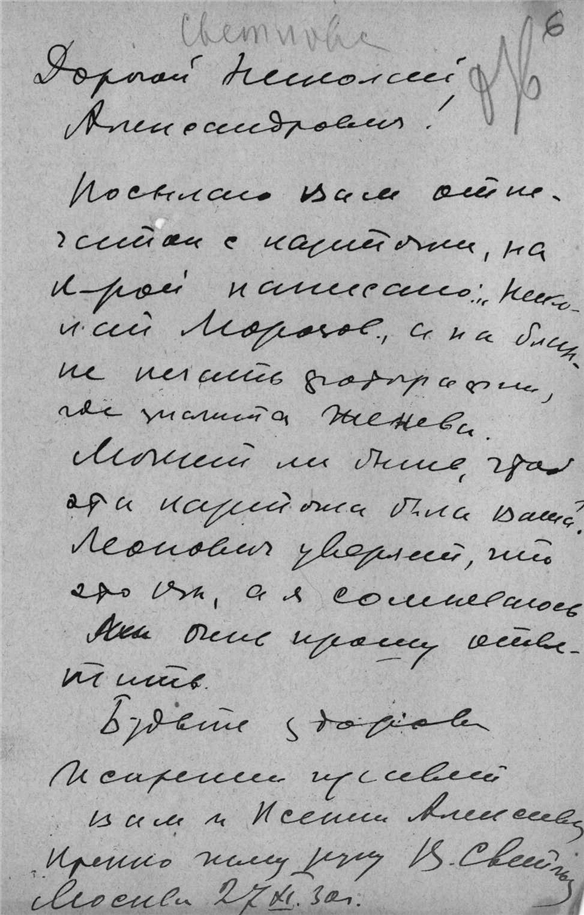 6
Дорогой Николай
Александрович!
Посылаю Вам отпе-
чаток с карточки, на
к-рой написано: „Нико-
лай Морозов", а на блан-
ке печать фотографии,
где значится Женева.
Может ли быть, чтоб
эта карточка была Ваша?
Леонович уверяет, что
это Вы, а я сомневаюсь
очень прошу отве-
тить.
Будьте здоровы
Искренний привет
Вам и Ксении Алексеевне
Крепко жму руку В.
Москва 27 XI. 30 г.